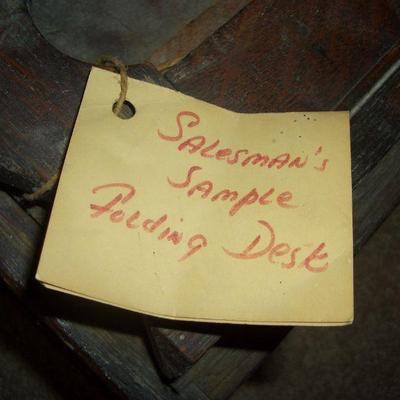 Salesman's
Sample
Folding Desk